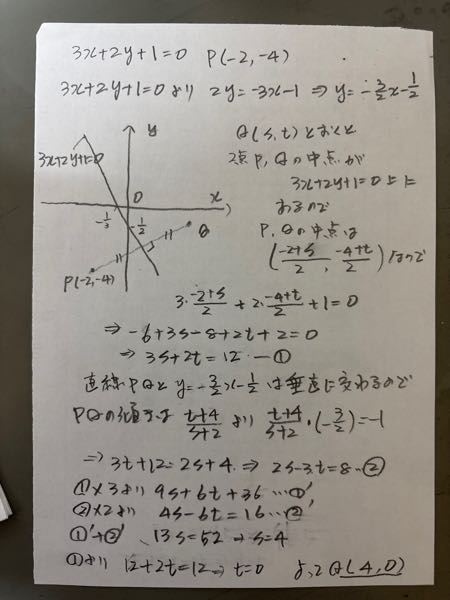 3x+2y+1=0 P(-2,-4)
3x+2y+1=0より 2y=-3x-1 ⇒ y=-3/2x-1/2
y
3x+2y+1=0
O
x
-1/3
-1/2
Q
P(-2,-4)
Q(s,t)とおくと
2点P,Qの中点が
3x+2y+1=0上に
あるので
P,Qの中点は
(-2+s/2, -4+t/2)なので
3・-2+s/2+2・-4+t/2+1=0
⇒ -6+3s-8+2t+2=0
⇒ 3s+2t=12 …①
直線PQとy=-3/2x-1/2は垂直に変わるので
PQの傾きは t+4/s+2 より t+4/s+2・(-3/2)=-1
⇒ 3t+12=2s+4 ⇒ 2s-3t=8…②
①×3より 9s+6t+36 …①'
②×2より 4s-6t=16…②'
①'+②' 13s=52 → s=4
①より 12+2t=12→t=0 よってQ(4,0)